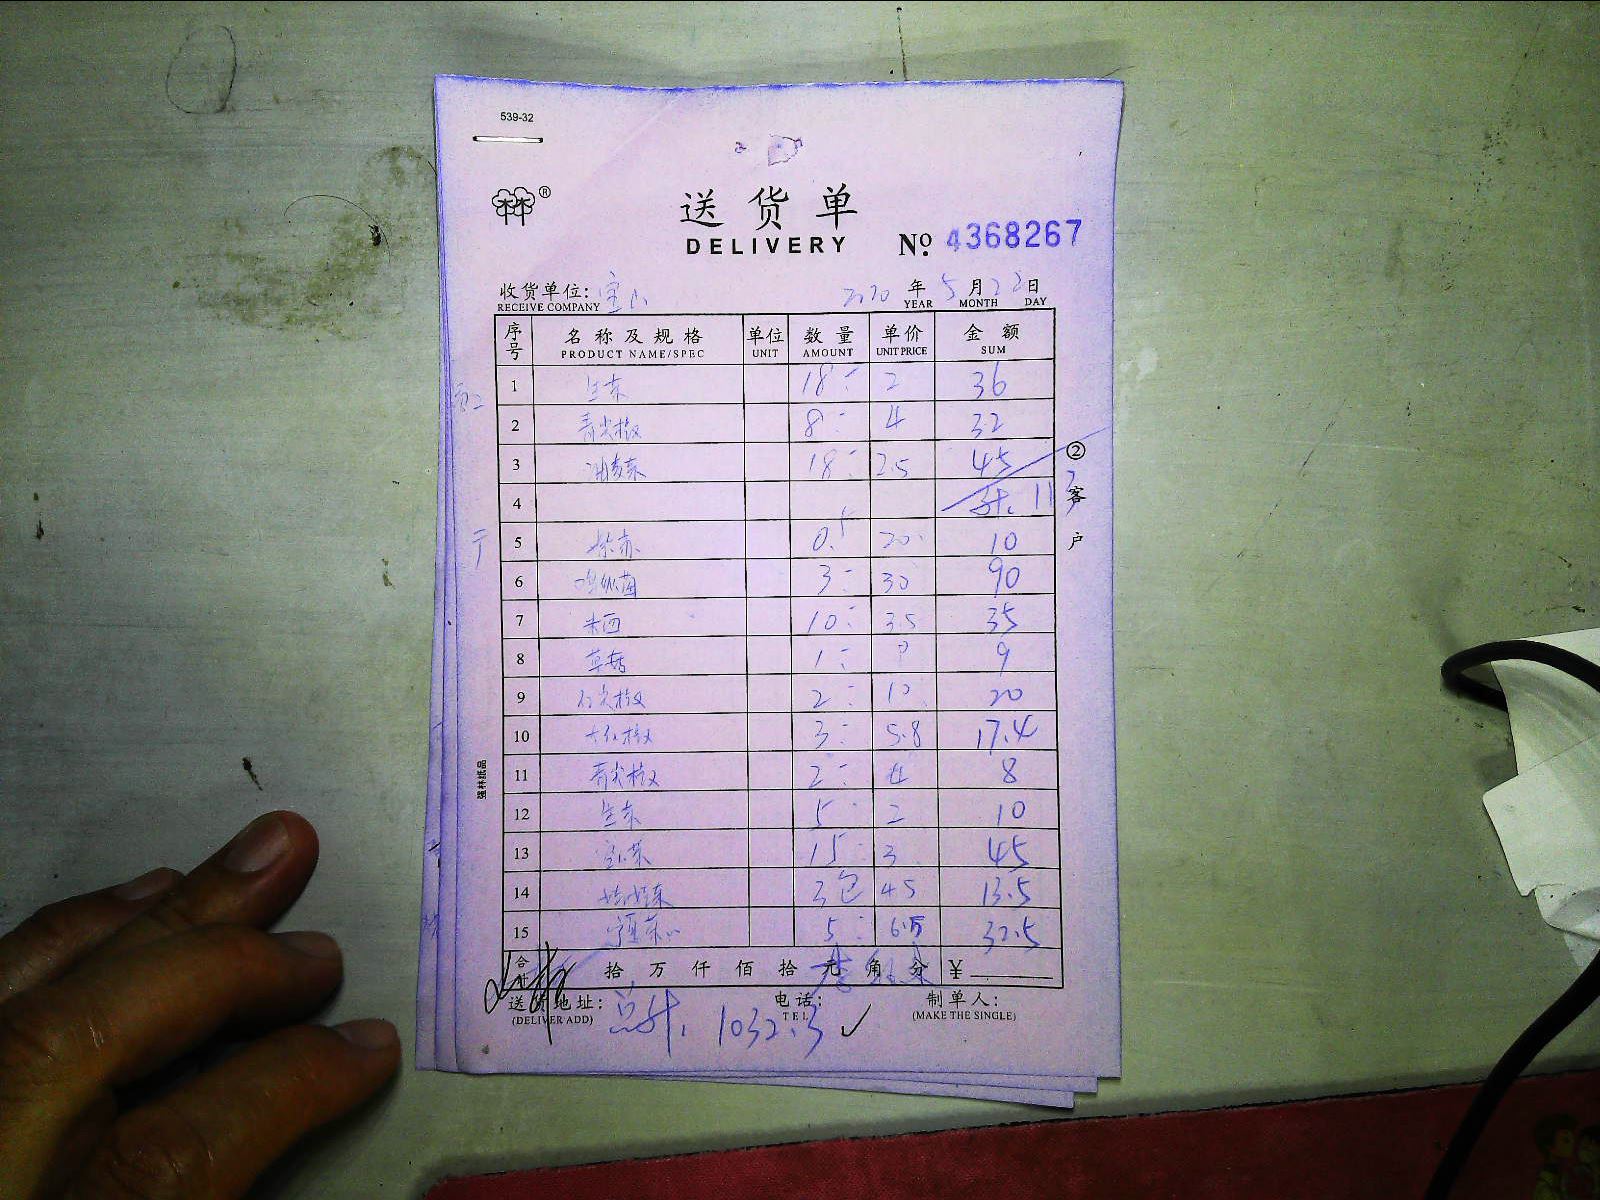 539-32
林林®
送货单
DELIVERY № 4368267
收货单位: 宝山 2020 年 5 月 23 日
RECEIVE COMPANY YEAR MONTH DAY
序号 名称及规格 单位 数量 单价 金额
PRODUCT NAME/SPEC UNIT AMOUNT UNIT PRICE SUM
1 生菜 18 2 36
2 青尖椒 8 4 32
3 油麦菜 18 2.5 45
② 客户
4 计. 113
5 0.5 20 10
6 3 30 90
7 米西 10 3.5 35
8 草菇 1 9 9
9 红尖椒 2 10 20
10 大红椒 3 5.8 17.4
11 青尖椒 2 4 8
12 生菜 5 2 10
13 15 3 45
14 娃娃菜 3包 4.5 13.5
15 5 6.5 32.5
强林纸品
合计 拾 万 仟 佰 拾 元 角 分 ¥
送货地址: 电话: 制单人:
(DELIVER ADD) TEL (MAKE THE SINGLE)
总计. 1032.3 ✓